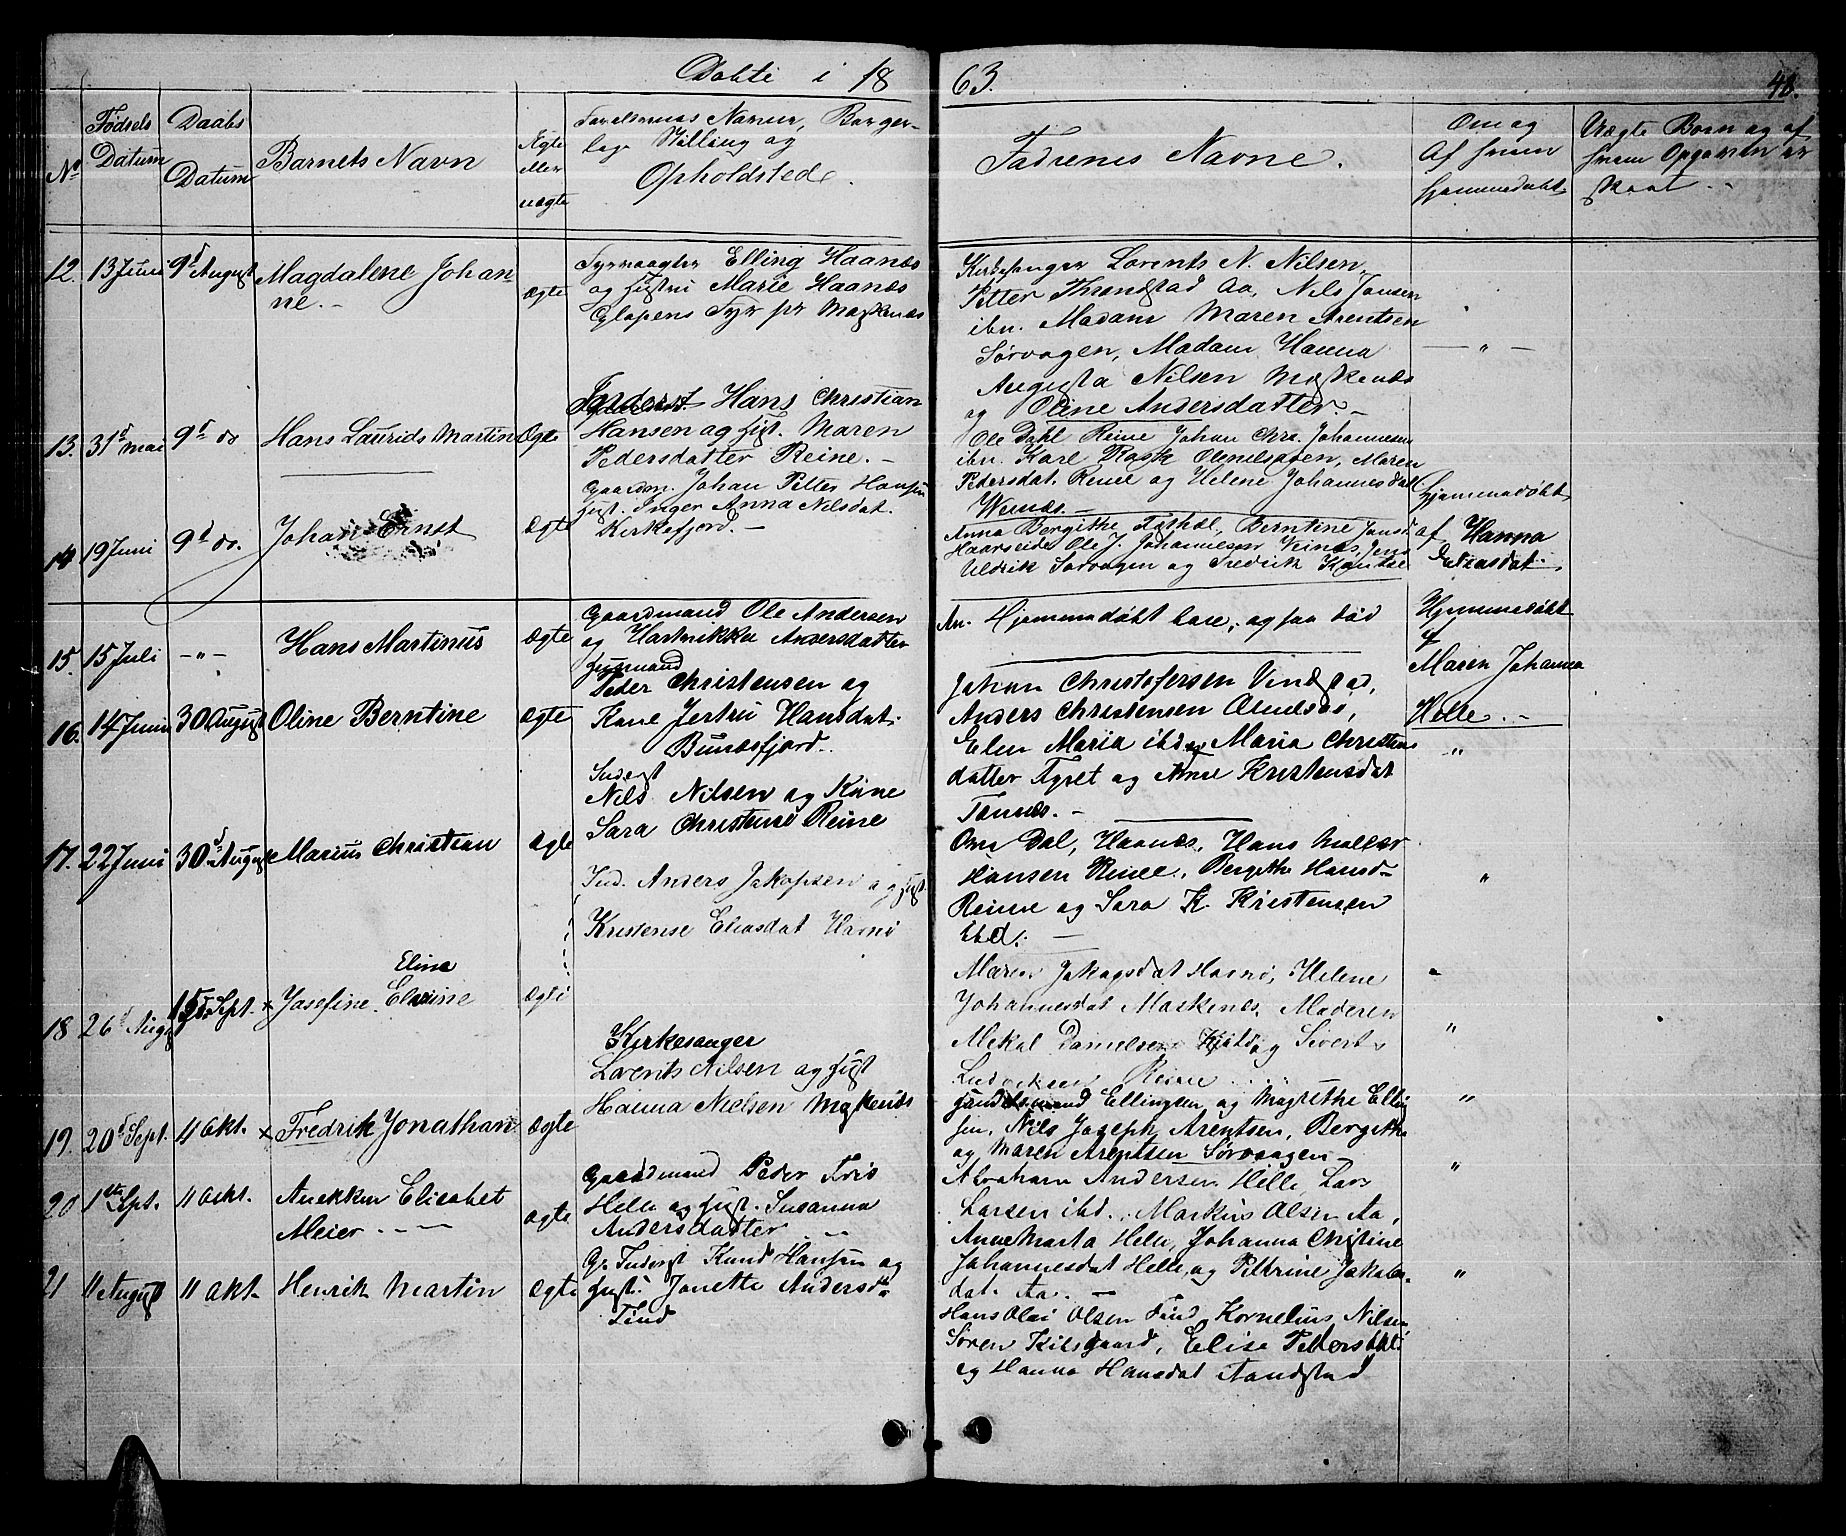 Døbte i 18 63. 48.
No
Fødsels Datum
Daabs Datum
Barnets Navn
Ægte eller uægte
Forældrenes Navne, Borger-
lige Stilling og
Opholdsted.
Fadrenes Navne.
Om og
Af hvem
hjemmedøbt
Uægte Born og af
hvem Opgaven er
skeet. -
12. 13 Juni 9d August Magdalene Johan-
ne. - ægte
Fyrvogter Elling Haanes
og Hustru Marie Haanes
Glapens Fyr pr Moskenæs
Kirkesanger Lorents N. Nilsen,
Petter Thronstad Aa, Nils Jansen
ibn. Madam Maren Arentsen
Sørvagen, Madam Hanna
Augusta Nilsen Moskenæs
og Oline Andersdatter. -
— " —
13. 31d Mai 9d do Hans Laurids Martin Ægte
Inderst Hans Christian
Hansen og Hust. Maren
Pedersdatter Reine. -
Ole Dahl Reine Johan Chr. Johannesen
ibn. Karl Rask Olenilsøen, Maren
Pedersdat. Reine og Helene Johannesdat
Weinæs. -
14 19 Juni 9d do. Johan Ernst ægte
Gaardm. Johan Petter Hansen
Hust. Inger Anna Nilsdat.
Kirkefjord. -
Anna Bergithe Berntine Jansd
Ole J. Johannesen Veinæs, Jens
Uldrik Sørvagen og Fredrik
Hjemmedøbt
af Hanna
Eliasdat.
15. 15 Juli - " - Hans Martinus ægte
Gaardmand Ole Andersen
og Hartvikka Andersdatter
An. Hjemmedøbt bare, og saa død
Hjemmedøbt
af
Maren Johanna
Helle. -
16. 14 Juni 30 August Oline Berntine ægte
Husmand
Peder Christensen og
Kone Jertru Hansdat.
Bunæsfjord.
Johan Christofersen Vindstad,
Anders Christensen Olnilsøe,
Elen Maria ibd og Maria Christens
datter og Ane Kristensdat
Tennæs. -
"
17. 22 Juni 30d August Marius Christian Ægte
Inderst
Nils Nilsen og Kone
Sara Christense Reine
Ona Dal, Havnæs, Hans Møller
Hansen Reine, Bergithe Hansd-
Reine og Sara K. Kristensen
ibd. -
"
18 26d Aug 15d. Sept. x Josefine Elina Elesine ægte
Ind. Anders Jakopsen og Hust
Kristense Eliasdat Havnø
Maren Jakopsdat Havnø, Helene
Johannesdat Moskenes, Maderen
Mekal Danielsen og Sivert
Ludviksen Reine
"
19. 20d Sept. 4 Okt. x Fredrik Jonathan ægte
Kirkesanger
Lorents Nilsen og Hust
Hanna Nielsen Moskenæs
Handelsmand Ellingsen og Magrethe Ellin
sen, Nils Joseph Arentsen, Bergithe
og Maren Arentsen Sørvaagen -
"
20 1ste Sept. 11 Okt. Anekken Elisabet
Meier - - — ægte
Gaardmand Peder Friis
Helle og Hust. Susanna
Andersdatter
Abraham Andersen Helle, Lars
Larsen ibd., Markus Olsen Aa,
Anne Marta Helle, Johanna Christine
Johannesdat Helle, og Petrine Jakobs-
dat. Aa. -
"
21 11 August 11 Okt. Henrik Martin Ægte
Gr. Inderst Knud Hansen og
Hust. Janette Andersd
Tind
Hans Olai Olsen Tind Kornelius Nilsen
Søren Kilsgaard, Elise Pedersdat
og Hanna Hansdat Sandstad
"